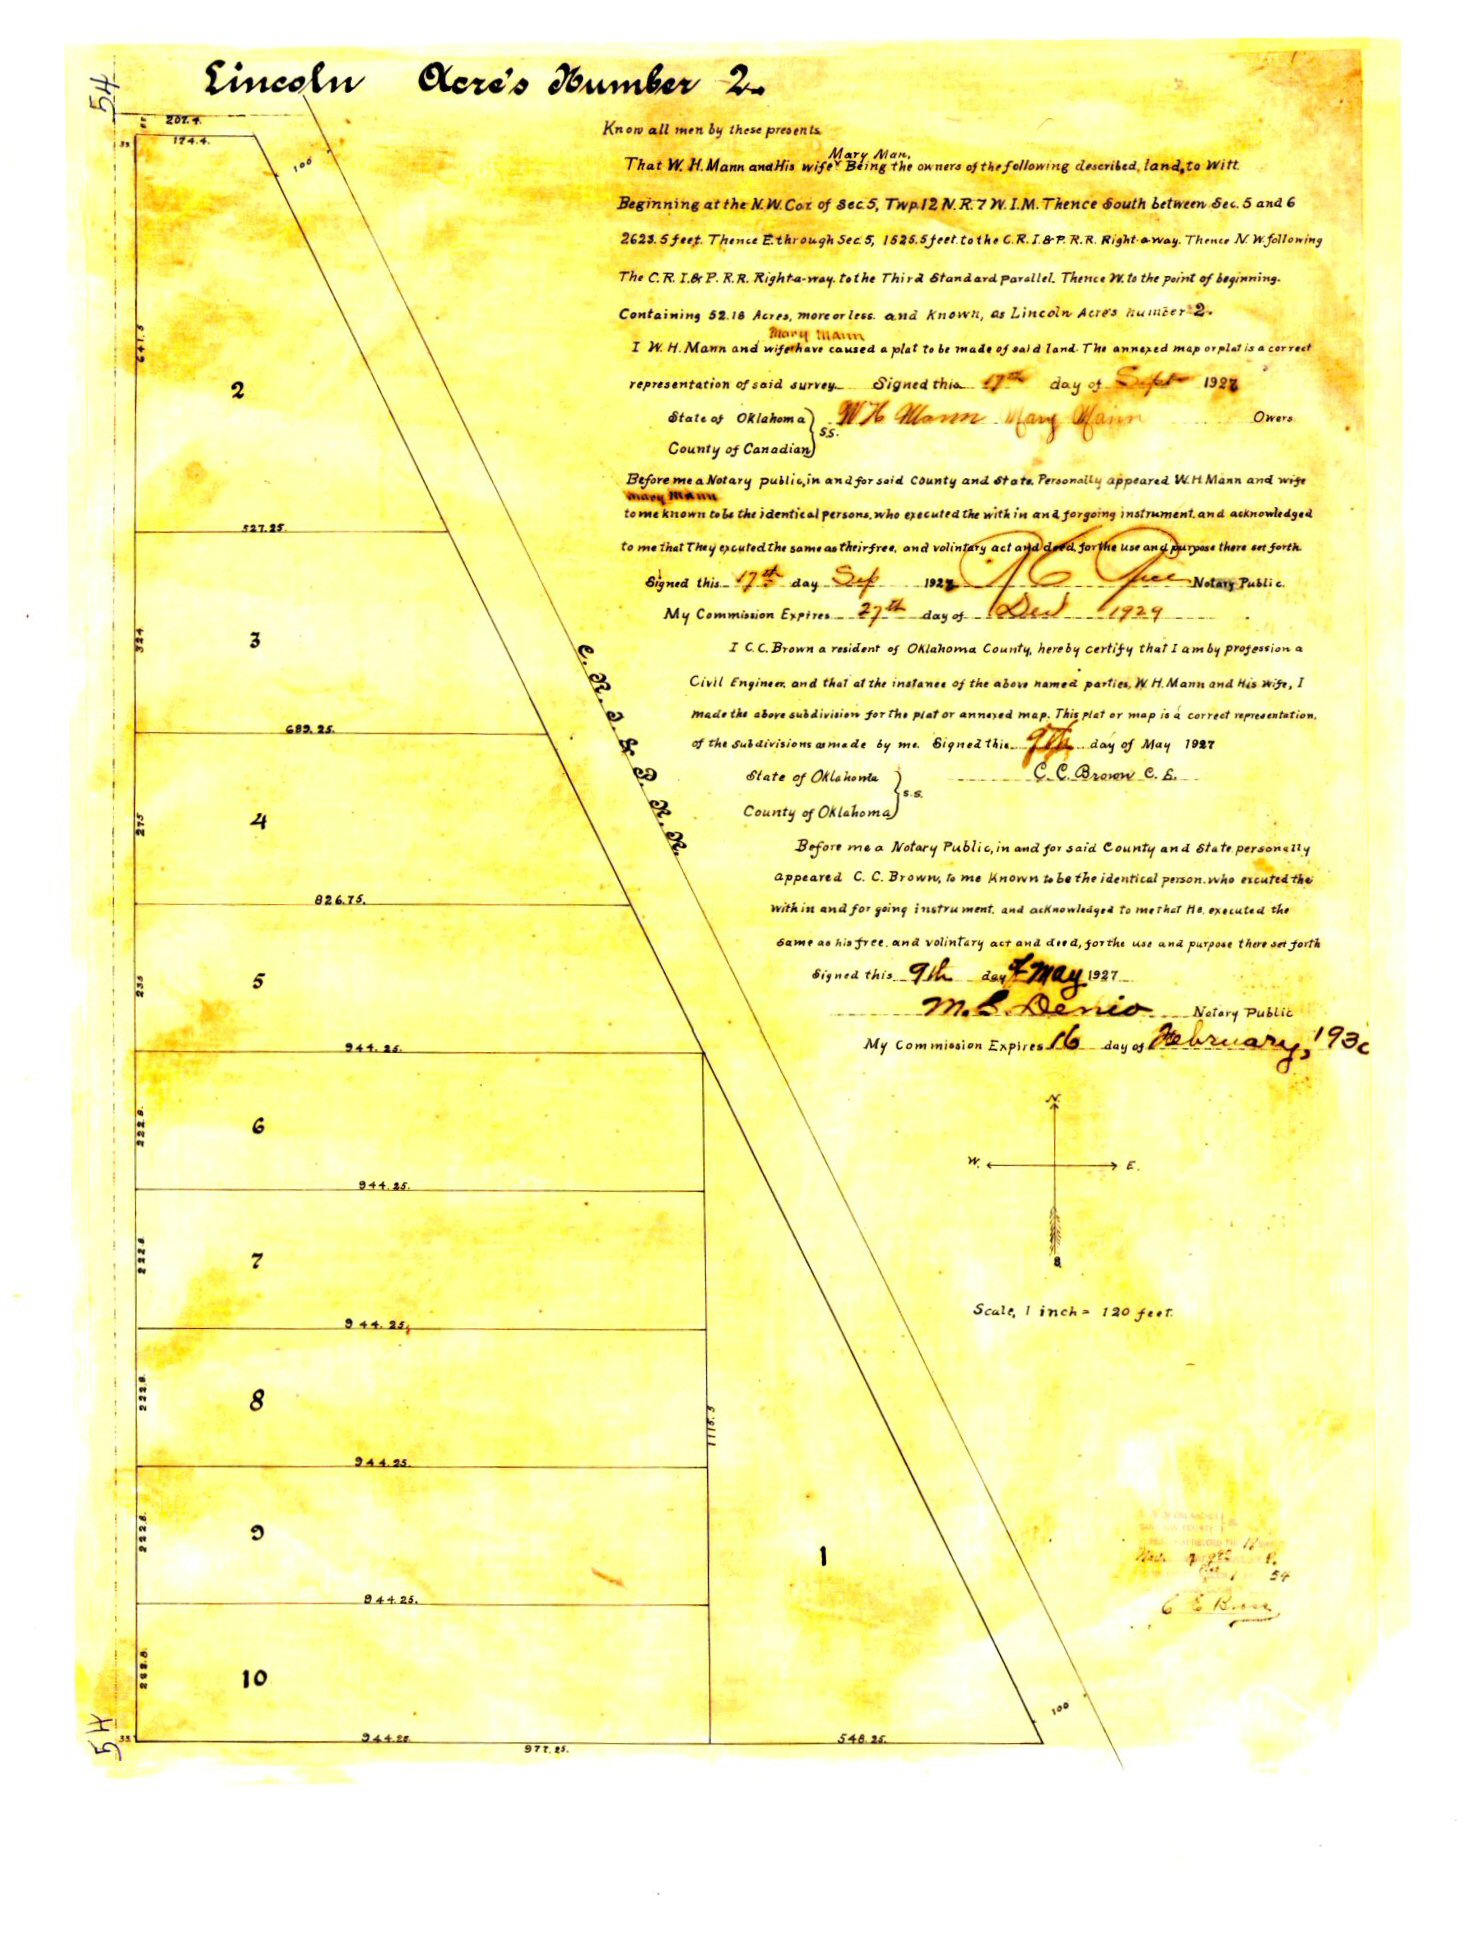 Lincoln Acre's Number 2.
54
207.4.
174.4.
33
100
Know all men by these presents.
Mary Man.
That W. H. Mann and His wife Being the owners of the following described, land, to Witt.
Beginning at the N.W. Cor. of Sec. 5, Twp. 12 N. R. 7 W. I. M. Thence South between Sec. 5 and 6
2623.5 feet. Thence E. through Sec. 5, 1525.5 feet. to the C. R. I. & P. R. R. Right-a-way. Thence N. W. following
The C. R. I. & P. R. R. Right-a-way. to the Third Standard parallel. Thence W. to the point of beginning.
Containing 52.18 Acres, more or less. and Known, as Lincoln Acre's number 2.
Mary Mann
I W. H. Mann and wife have caused a plat to be made of said land. The annexed map or plat is a correct
representation of said survey. Signed this 17th day of Sept 1927
State of Oklahoma W H Mann Mary Mann Owers
S.S.
County of Canadian
Before me a Notary public, in and for said County and State. Personally appeared W. H. Mann and wife
Mary Mann
to me known to be the identical persons, who executed the with in and forgoing instrument, and acknowledged
to me that They excuted the same as their free, and volintary act and deed, for the use and purpose there set forth.
Signed this 17th day Sep 1927 Notary Public.
My Commission Expires 27th day of Dec 1929
I C. C. Brown a resident of Oklahoma County, hereby certify that I am by profession a
Civil Engineer, and that at the instance of the above named parties, W. H. Mann and His wife, I
made the above subdivision for the plat or annexed map. This plat or map is a correct representation,
of the subdivisions as made by me. Signed this 9th day of May 1927
State of Oklahoma C. C. Brown C. E.
S.S.
County of Oklahoma
Before me a Notary Public, in and for said County and State personally
appeared C. C. Brown, to me Known to be the identical person. who excuted the
with in and for going instrument, and acknowledged to me that He. executed the
same as his free. and volintary act and deed, for the use and purpose there set forth
Signed this 9th day of May 1927
M. S. Denio Notary Public
My Commission Expires 16 day of February, 193
N.
W. E.
S.
Scale, 1 inch = 120 feet.
641.5
2
527.25
324
3
689.25.
275
4
826.75.
235
5
944.25.
C. R. I. & P. R. R.
222.8.
6
944.25.
222.8
7
944.25.
222.8.
8
944.25
1115.5
222.8.
9
944.25.
1
222.8
10
54
33
944.25
977.25.
548.25.
100
54